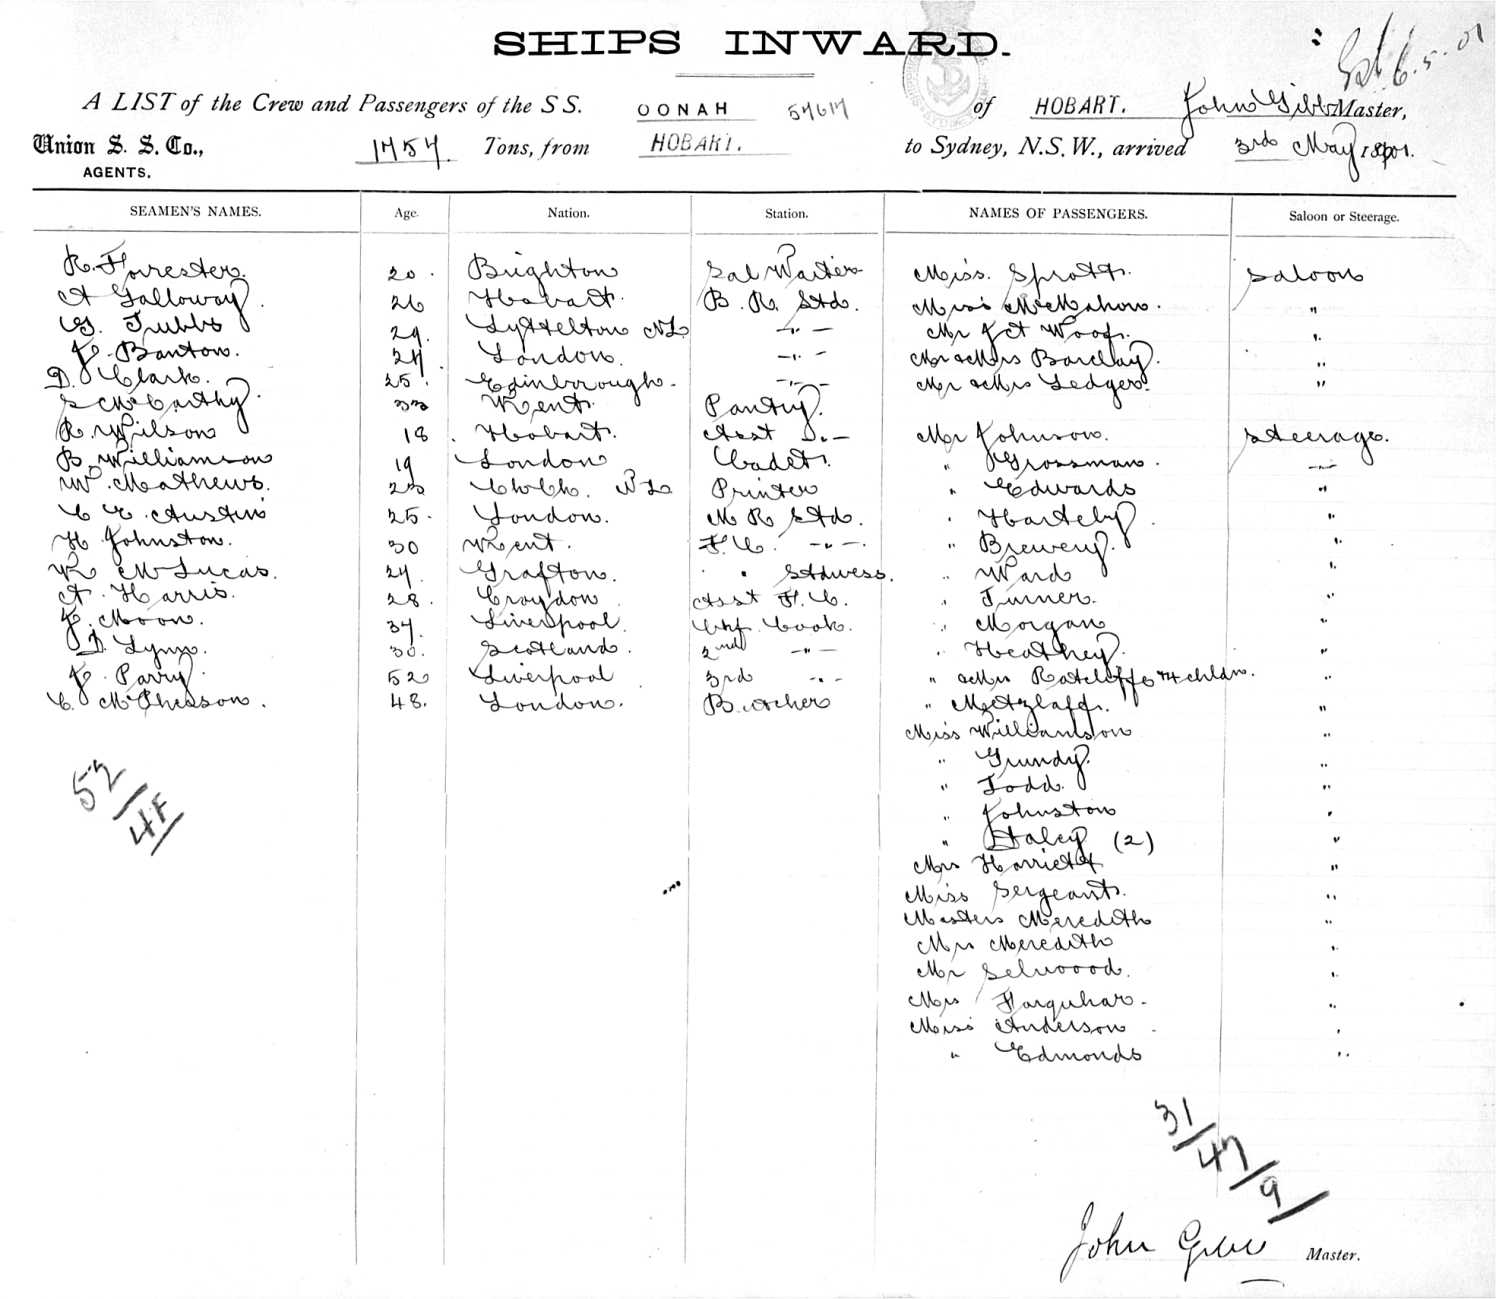 SHIPS INWARD.
6.5.01
A LIST of the Crew and Passengers of the S S. OONAH 57617 of HOBART. John Gibb Master,
Union S. S. Co., 1757 Tons, from HOBART. to Sydney, N.S.W., arrived 3rd May 1901.
AGENTS.
SEAMEN'S NAMES. Age. Nation. Station. NAMES OF PASSENGERS. Saloon or Steerage.
R. Forrester. 20. Brighton Sal Waiter Miss. Sprott. Saloon
A Galloway. 26 Hobart. B. R. Std. Miss McMahon. "
G. Tubbs 29. Lyttelton NZ — " — Mr Wood. "
J. Banton. 27. London. — " — Mr & Mrs Barclay. "
D. Clark. 25. Edinborough. — " — Mr & Mrs Ledger. "
S McCarthy. 33 Kent. Pantry.
R. Wilson 18. Hobart. Asst " — Mr Johnson. Steerage.
B. Williamson 19 London Cadet. " Grossman. — " —
W. Mathews. 23 ChCh. NZ Printer " Edwards "
C E. Austin 25. London. M R Std. " Harteby. "
H. Johnston. 30 Kent. F. C. — " —. " Brewery. "
K McLucas. 27. Grafton. " Stdwess. " Ward "
A. Harris. 28. Croydon Asst F. C. " Turner. "
J. Moon. 37. Liverpool. Chf. Cook. " Morgan "
D. Lynn. 30. Scotland. 2nd — " — " Heathey. "
J. Parry. 52 Liverpool 3rd — " — " & Mrs Ratcliffe & 4 chldn. "
C. McPhesson. 48. London. Butcher " Metzlaff. "
Miss Williamson "
" Grundy. "
" Todd. "
" Johnston "
" Haley (2) "
Mrs "
Miss Sergeant. "
Masters Meredith "
Mrs Meredith "
Mr Selwood. "
Mrs Farquhar. "
Miss Anderson "
" Edmonds "
52/
31/47/9/
John Gibb Master.